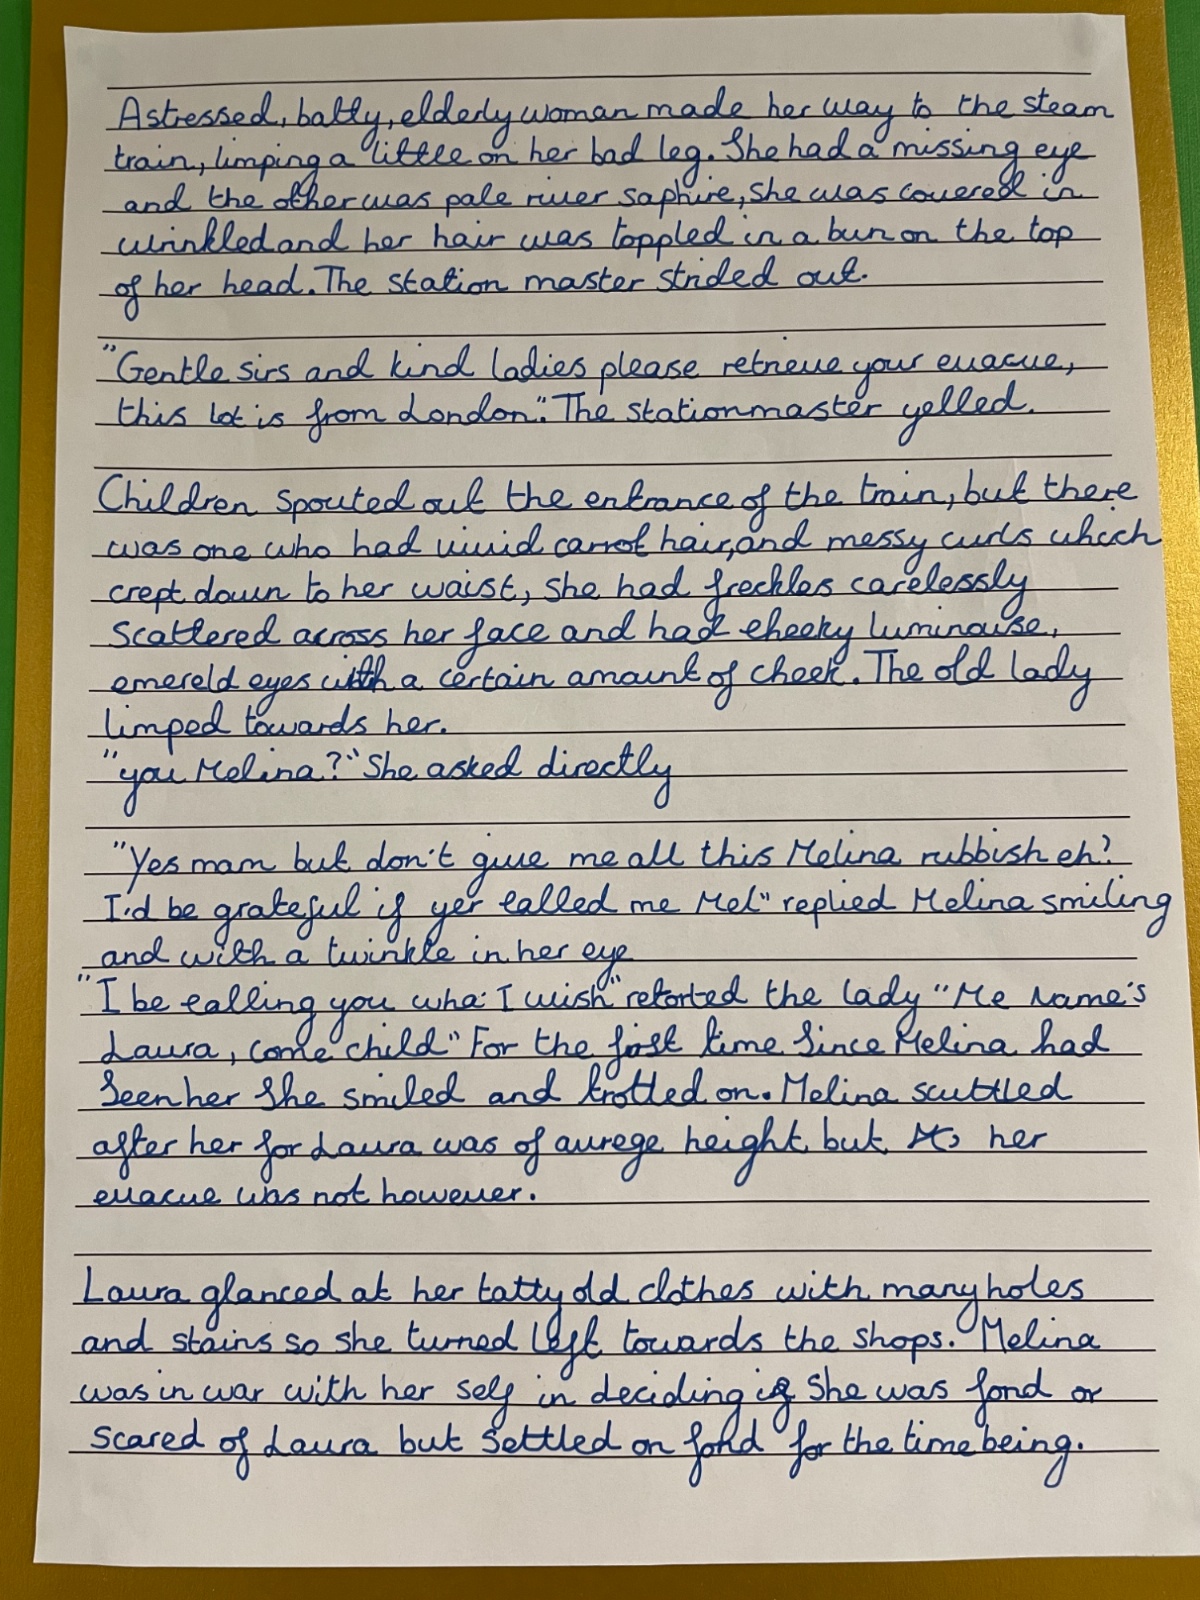 A stressed, batty, elderly woman made her way to the steam
train, limping a little on her bad leg. She had a missing eye
and the other was pale river saphire, she was covered in
wrinkled and her hair was toppled in a bun on the top
of her head. The station master strided out.
"Gentle sirs and kind ladies please retrieve your evacue,
this lot is from London". The stationmaster yelled.
Children spouted out the entrance of the train, but there
was one who had vivid carrot hair, and messy curls which
crept down to her waist, she had freckles carelessly
scattered across her face and had cheeky luminouse,
emereld eyes with a certain amount of cheek. The old lady
limped towards her.
"you Melina?" She asked directly
"Yes mam but don't give me all this Melina rubbish eh?
I'd be grateful if yer called me Mel" replied Melina smiling
and with a twinkle in her eye
"I be calling you wha' I wish" retorted the lady "Me Name's
Laura, come child" For the first time since Melina had
seen her she smiled and trotted on. Melina scuttled
after her for Laura was of avrege height but her
evacue was not however.
Laura glanced at her tatty old clothes with many holes
and stains so she turned left towards the shops. Melina
was in war with her self in deciding if she was fond or
scared of Laura but settled on fond for the time being.